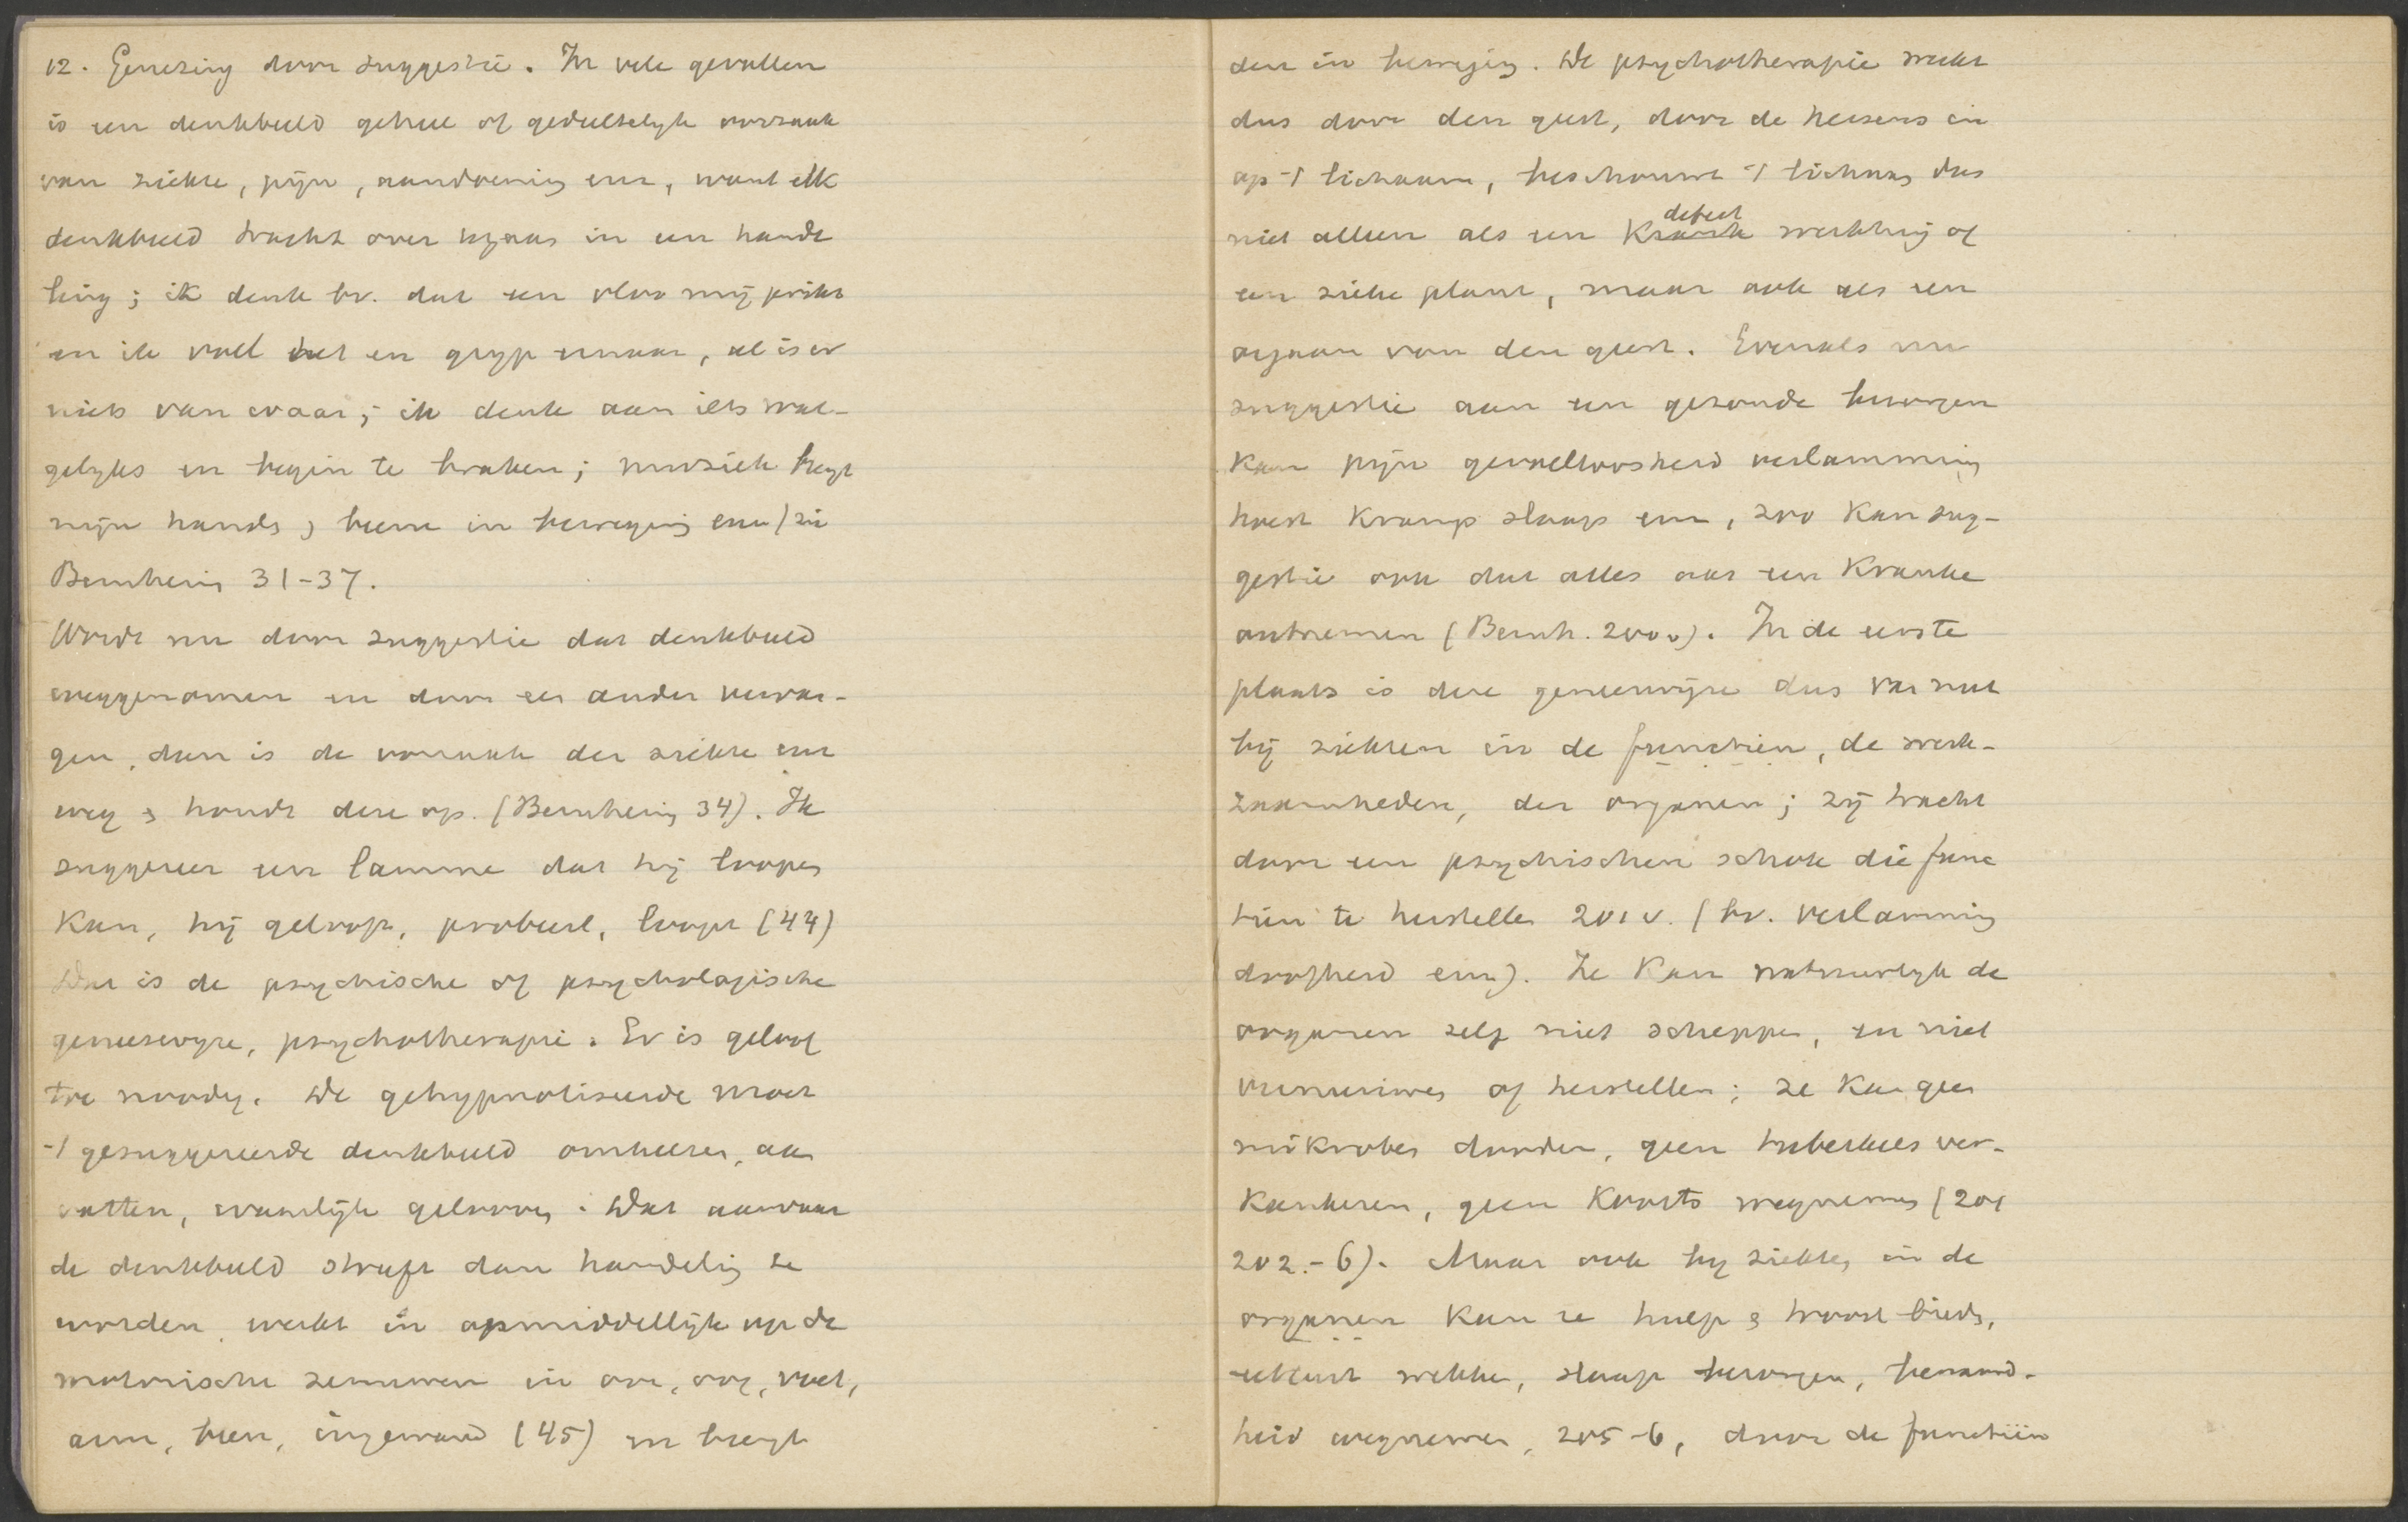 12. Genezing door suggestie. In vele gevallen
is een denkbeeld geheel of gedeeltelyk oorzaak
van ziekte, pijn, aandoening enz, want elk
denkbeeld tracht over te gaan in een hande
ling; ik denk bv. dat een vloo mij prikt
en ik voel het en gryp ernaar, al is er
niets van waar; ik denk aan iets wal-
gelyks en begin te braken; muziek bregt
mijn hands & beene in beweging enz (zie
Bernheim 31-37.
Wordt nu door suggestie dat denkbeeld
weggenomen en door een ander vervan-
gen, dan is de oorzaak der ziekte enz
weg & houdt deze op. (Bernheim 34). Ik
suggereer een lamme dat hij loopen
kan, hij gelooft, probeert, loopt (44)
Dat is de psychische of psychologische
geneeswyze, psychotherapie. Er is geloof
toe noodig. De gehypnotiseerde moet
't gesuggereerde denkbeeld omhelzen, aan
vatten, waarlijk gelooven. Dat aanvaar
de denkbeeld streeft dan handeling te
worden, werkt in onmiddellijk op de
motorische zenuwen in oor, oog, voet,
arm, been, ingewand (45) en brengt
den in beweging. De psychotherapie werkt
dus door den geest, door de hersens in
op 't lichaam, beschouwt 't lichaam dus
niet alleen als een defect werktuig of
een zieke plant, maar ook als een
orgaan van den geest. Evenals nu
suggestie aan een gezonde bezorgen
kan pijn gevoelloosheid verlamming
hoest kramp slaap enz, zoo kan sug-
gestie ook dat alles aan een kranke
ontnemen (Bernh. 200v). In de eerste
plaats is deze geneeswijze dus van nut
bij ziekten in de functien, de werk-
zaamheden, der organen; zij tracht
door een psychischen schok die func
tien te herstellen 201 v. (bv. verlamming
doofheid enz). Ze kan natuurlyk de
organen zelf niet scheppen, en niet
vernieuwen of herstellen; ze kan geen
mikroben dooden, geen tuberkels ver-
kankeren, geen koorts wegnemen (201
202.-6). Maar ook by ziekten in de
organen kan ze hulp & troost bieden,
eetlust wekken, slaap bezorgen, benauwd-
heid wegnemen, 205-6, door de functiën